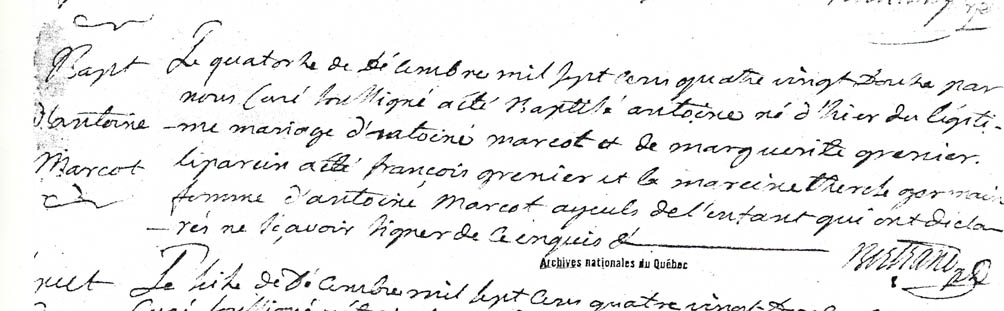 Bapt
d'antoine
Marcot
Le quatorze de Décembre mil sept cens quatre vingt Douze par
nous Curé soussigné a été Baptisé antoine né d'hier du légiti-
-me mariage d'antoine marcot et de marguerite grenier.
le parein a été françois grenier et la mareine therese germain
femme d'antoine Marcot ayeuls de l'enfant qui ont décla
-rés ne sçavoir signer de ce enquis &
Bertrand ptre
Archives nationales du Québec
Le seize de Décembre mil sept cens quatre vingt Douze
Curé soussigné